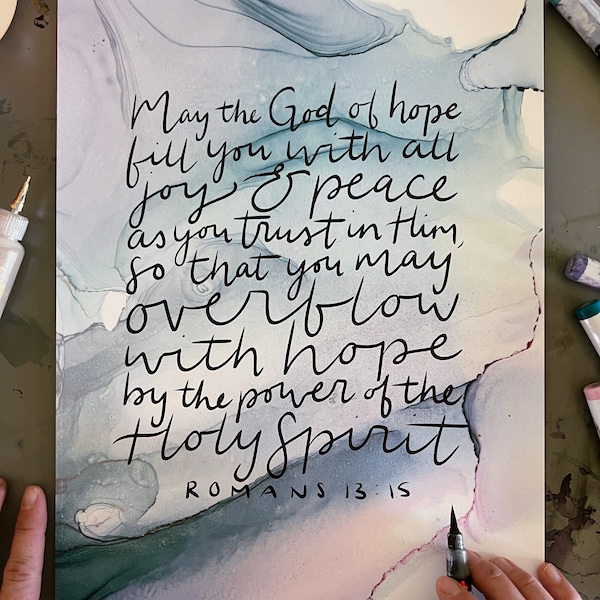 May the God of hope
fill you with all
joy & peace
as you trust in Him,
so that you may
overflow
with hope
by the power of the
Holy Spirit
ROMANS 13:15